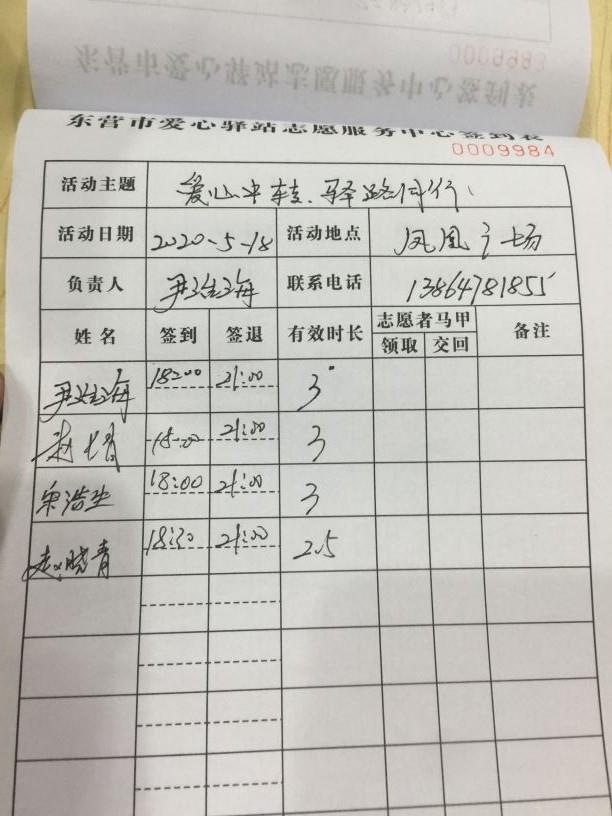 东营市爱心驿站志愿服务中心签到表
0009984
活动主题 爱心中转、驿路同行
活动日期 2020-5-18 活动地点 凤凰广场
负责人 海 联系电话 13864781855
姓名 签到 签退 有效时长 志愿者马甲 备注
领取 交回
海 18:00 21:00 3
18:00 21:00 3
浩生 18:00 21:00 3
赵晓青 18:30 21:00 2.5